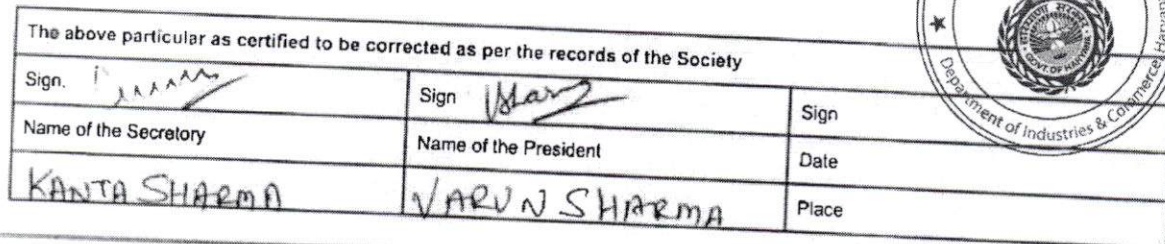 The above particular as certified to be corrected as per the records of the Society
Sign. Sign Sign
Name of the Secretory Name of the President Date
KANTA SHARMA VARUN SHARMA Place
Department of Industries & Commerce, Haryana
GOVT OF HARYANA